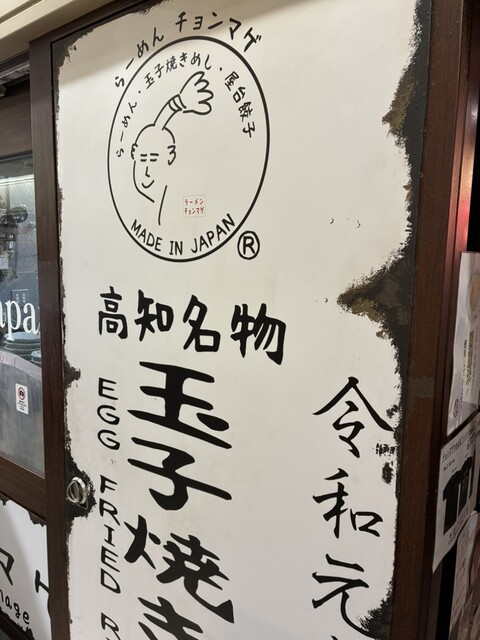 らーめん チョンマゲ
らーめん・玉子焼きめし・屋台餃子
ラーメン
チョンマゲ
MADE IN JAPAN ®
高知名物
玉子焼き
EGG FRIED R
令和元
apa
マゲ
mage